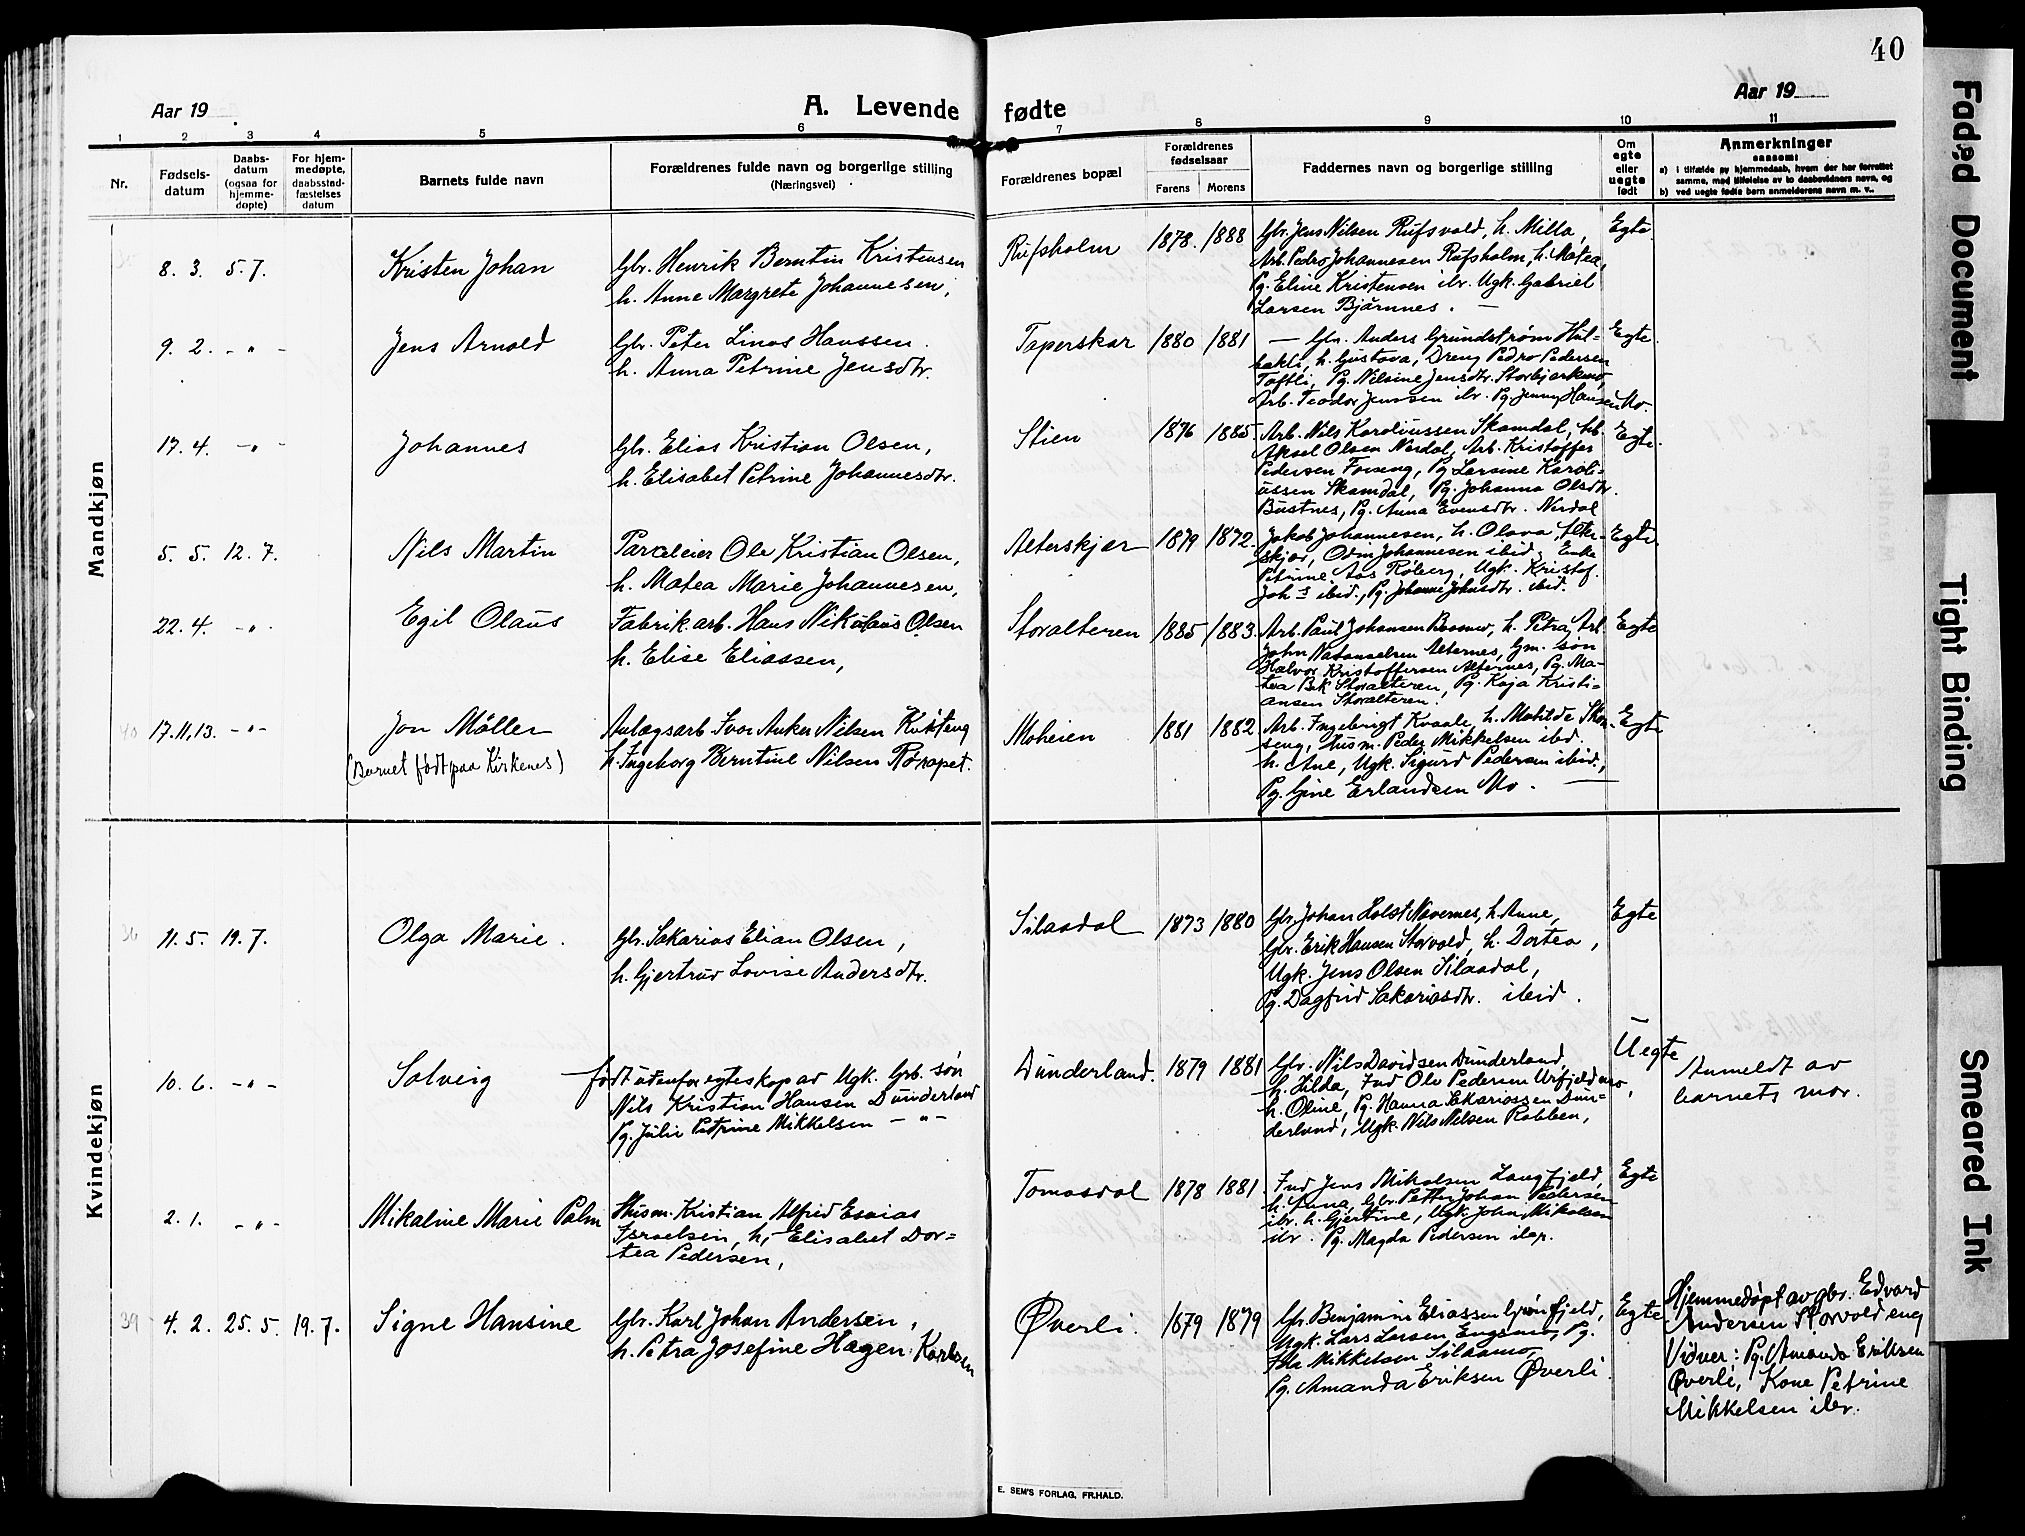 40
Aar 19
A. Levende fødte
Aar 19
1 2 3 4 5 6 7 8 9 10 11
Nr.
Fødsels-
datum
Daabs-
datum
(ogsaa for
hjemme-
døpte)
For hjem-
medøpte,
daabsstad-
fæstelses
datum
Barnets fulde navn
Forældrenes fulde navn og borgerlige stilling
(Næringsvei)
Forældrenes bopæl
Forældrenes
fødselsaar
Farens Morens
Faddernes navn og borgerlige stilling
Om
egte
eller
uegte
født
Anmerkninger
saasom:
a) i tilfælde av hjemmedaab, hvem der har forrettet
samme, med tilføielse av to daabsvidners navn, og
b) ved uegte fødte barn anmelderens navn m. v.
Mandkjøn
8. 3. 5. 7.
Kristen Johan
Gbr. Henrik Berntin Kristensen
h. Anne Margrete Johannesen,
Rufsholm
1878. 1888
Gbr. Jens Nilsen Rufsvold, h. Milla,
Arb. Pedro Johannesen Rufsholm, h. Matea,
Pg. Eline Kristensen ibr. Ugk. Gabriel
Larsen Bjårnnes. —
Egte
9. 2. - " -
Jens Arnold
Gbr. Peter Linos Hanssen.
h. Anna Petrine Jensdtr.
Taperskar
1880 1881
— Gbr. Anders Grundstrøm Hul-
bakli, h. Gustava, Dreng Pedro Pedersen
Toftli, Pg. Nilsine Jensdtr. Storbjørkmo,
Arb. Teodor Jenssen ibr. Pg. Jenny Hansen Mo.
Egte.
17. 4. - " -
Johannes
Gbr. Elias Kristian Olsen,
h. Elisabet Petrine Johannesdtr.
Stien
1876 1885
Arb. Nils Karoliussen Skamdal, Arb.
Aksel Olsen Nerdal, Arb. Kristoffer
Pedersen Forseng, Pg. Larsine Karoli-
ussen Skamdal, Pg. Johanna Olsdtr.
Bustnes, Pg. Anna Evensdtr. Nerdal
Egte.
5. 5. 12. 7.
Nils Martin
Parceleier Ole Kristian Olsen,
h. Matea Marie Johannesen,
Alterskjær
1879 1872.
Jakob Johannesen, h. Olava, Alter-
skjær, Odin Johannesen ibid, Enke
Petrine Aas Røberg, Ugk. Kristof.
Joh. ibid., Pg. Johanne Johnsdtr. ibid.
Egte.
22. 4. - " -
Egil Olaus
Fabrik.arb. Hans Nikolaus Olsen
h. Elise Eliassen,
Storalteren
1885 1883.
Arb. Paul Johansen Bosmo, h. Petra, Arb.
John Natanaelsen Alternes, Gm. søn
Halvor Kristoffersen Alternes, Pg. Ma-
tea Bek Storalteren, Pg. Kaja Kristi-
ansen Storalteren.
Egte
40
17.11.13. - " -
Jon Møller
(Barnet født paa Kirkenes)
Anlægsarb. Ivar Anker Nilsen
h. Ingeborg Berntine Nilsen
Moheien
1881 1882
Arb. Ingebrigt Kvaale, h. Matilde Skon-
seng, Husm. Peder Mikkelsen ibid.
h. Ane, Ugk. Sigurd Pedersen ibid.,
Pg. Gine Erlandsen Mo. —
Egte
Kvindekjøn
36
11. 5. 19. 7.
Olga Marie.
Gbr. Sakarias Elian Olsen,
h. Gjertrud Lovise Andersdtr.
Silaadal
1873 1880
Gbr. Johan Holst Navernes, h. Anne,
Gbr. Erik Hansen Storvold, h. Dortea,
Ugk. Jens Olsen Silaadal,
Pg. Dagfrid Sakariasdtr. ibid.
Egte
10. 6. - " -
Solveig
født utenfor egteskap av Ugk. Grb. søn
Nils Kristian Hansen Dunderland
Pg. Julie Petrine Mikkelsen - " -
Dunderland.
1879 1881
Gbr. Nils Davidsen Dunderland,
h. Hilda, Ind Ole Pedersen Urfjeldmo,
h. Oline, Pg. Hanna Sakariassen Dun-
derland, Ugk. Nils Nilsen Rabben,
Uegte
Anmeldt av
barnets mor.
2. 1. - " -
Mikaline Marie Palm
Husm. Kristian Alfred Esaias
Israelsen, h. Elisabet Dor-
tea Pedersen,
Tomasdal
1878 1881.
Ind Jens Mikalsen Langfjeld,
h. Anna, Gbr. Petter Johan Pedersen
ibr. h. Gjertine, Ugk. John Mikalsen
ibr. Pg. Magda Pedersen ibr.
Egte
39
4. 2. 25. 5. 19. 7.
Signe Hansine
Gbr. Karl Johan Andersen,
h. Petra Josefine Hagen. Karlsen
Øverli.
1879 1879
Gbr. Benjamin Eliassen Grønfjeld,
Ugk. Lars Larsen Engsmo, Pg.
Ida Mikkelsen Silaamo,
Pg. Amanda Eriksen Øverli.
Egte
Hjemmedøpt av gbr. Edvard
Andersen Storvoldeng
Vidner: Pg. Amanda Eriksen
Øverli, Kone Petrine
Mikkelsen ibr.
E. SEM'S FORLAG, FR.HALD.
Faded Document
Tight Binding
Smeared Ink